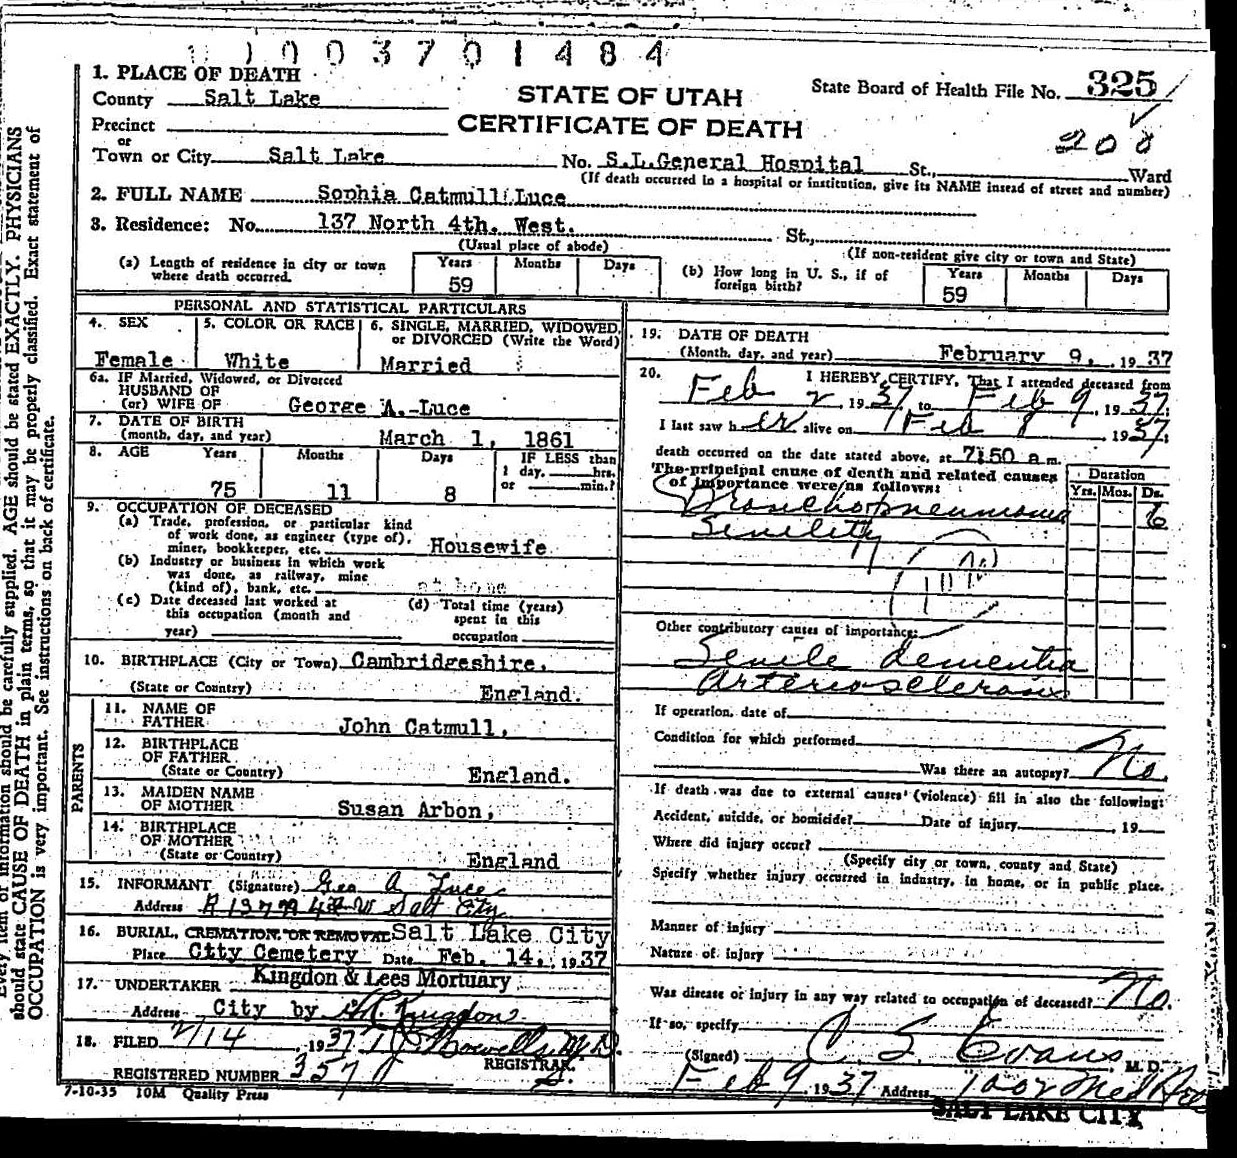 1003701484
1. PLACE OF DEATH
County Salt Lake
Precinct
or
Town or City Salt Lake No. S.L.General Hospital St., Ward
(If death occurred in a hospital or institution, give its NAME insead of street and number)
STATE OF UTAH
CERTIFICATE OF DEATH
State Board of Health File No. 325
200
2. FULL NAME Sophia Catmull Luce
3. Residence: No. 137 North 4th. West. St.,
(Usual place of abode)
(If non-resident give city or town and State)
(a) Length of residence in city or town
where death occurred.
Years Months Days
59
(b) How long in U. S., if of
foreign birth?
Years Months Days
59
PERSONAL AND STATISTICAL PARTICULARS
4. SEX
Female
5. COLOR OR RACE
White
6. SINGLE, MARRIED, WIDOWED,
or DIVORCED (Write the Word)
Married
6a. IF Married, Widowed, or Divorced
HUSBAND OF
(or) WIFE OF George A. Luce
7. DATE OF BIRTH
(month, day, and year) March 1, 1861
8. AGE Years Months Days IF LESS than
1 day, hrs.
or min.?
75 11 8
9. OCCUPATION OF DECEASED
(a) Trade, profession, or particular kind
of work done, as engineer (type of),
miner, bookkeeper, etc. Housewife
(b) Industry or business in which work
was done, as railway, mine
(kind of), bank, etc. at home
(c) Date deceased last worked at
this occupation (month and
year)
(d) Total time (years)
spent in this
occupation
10. BIRTHPLACE (City or Town) Cambridgeshire,
(State or Country) England.
PARENTS
11. NAME OF
FATHER John Catmull,
12. BIRTHPLACE
OF FATHER
(State or Country) England.
13. MAIDEN NAME
OF MOTHER Susan Arbon,
14. BIRTHPLACE
OF MOTHER
(State or Country) England
15. INFORMANT (Signature) Geo A Luce
Address 137 N 4th W Salt City
16. BURIAL, CREMATION, OR REMOVAL Salt Lake City
Place City Cemetery Date Feb. 14, 1937
17. UNDERTAKER Kingdon & Lees Mortuary
Address City by Kingdon
18. FILED 2/14 1937 M.D.
REGISTRAR.
REGISTERED NUMBER 357
7-10-35 10M Quality Press
19. DATE OF DEATH
(Month, day, and year) February 9, 1937
20. I HEREBY CERTIFY, That I attended deceased from
Feb 2, 1937 to Feb 9, 1937
I last saw her alive on Feb 8 1937;
death occurred on the date stated above, at 7:50 a m.
The principal cause of death and related causes
of importance were as follows:
Duration
Yrs. Mos. Ds.
Bronchopneumonia 6
Senility
107
Other contributory causes of importance:
Senile dementia
Arteriosclerosis
If operation, date of
Condition for which performed
Was there an autopsy? No.
If death was due to external causes (violence) fill in also the following:
Accident, suicide, or homicide? Date of injury , 19
Where did injury occur?
(Specify city or town, county and State)
Specify whether injury occurred in industry, in home, or in public place.
Manner of injury
Nature of injury
Was disease or injury in any way related to occupation of deceased? No.
If so, specify
(Signed) C. S. Evans M. D.
Feb 9, 1937 Address 1002 Med
SALT LAKE CITY
Every item of information should be carefully supplied. AGE should be stated EXACTLY. PHYSICIANS
should state CAUSE OF DEATH in plain terms, so that it may be properly classified. Exact statement of
OCCUPATION is very important. See instructions on back of certificate.